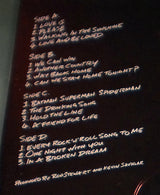 SIDE A
1. LOVE IS
2. PLEASE
3. WALKING IN THE SUNSHINE
4. LOVE AND BE LOVED
SIDE B
1. WE CAN WIN
2. ANOTHER COUNTRY
3. WAY BACK HOME
4. CAN WE STAY HOME TONIGHT?
SIDE C
1. BATMAN SUPERMAN SPIDERMAN
2. THE DRINKING SONG
3. HOLD THE LINE
4. A FRIEND FOR LIFE
SIDE D
1. EVERY ROCK 'N' ROLL SONG TO ME
2. ONE NIGHT WITH YOU
3. IN A BROKEN DREAM
PRODUCED BY ROD STEWART AND KEVIN SAVIGAR